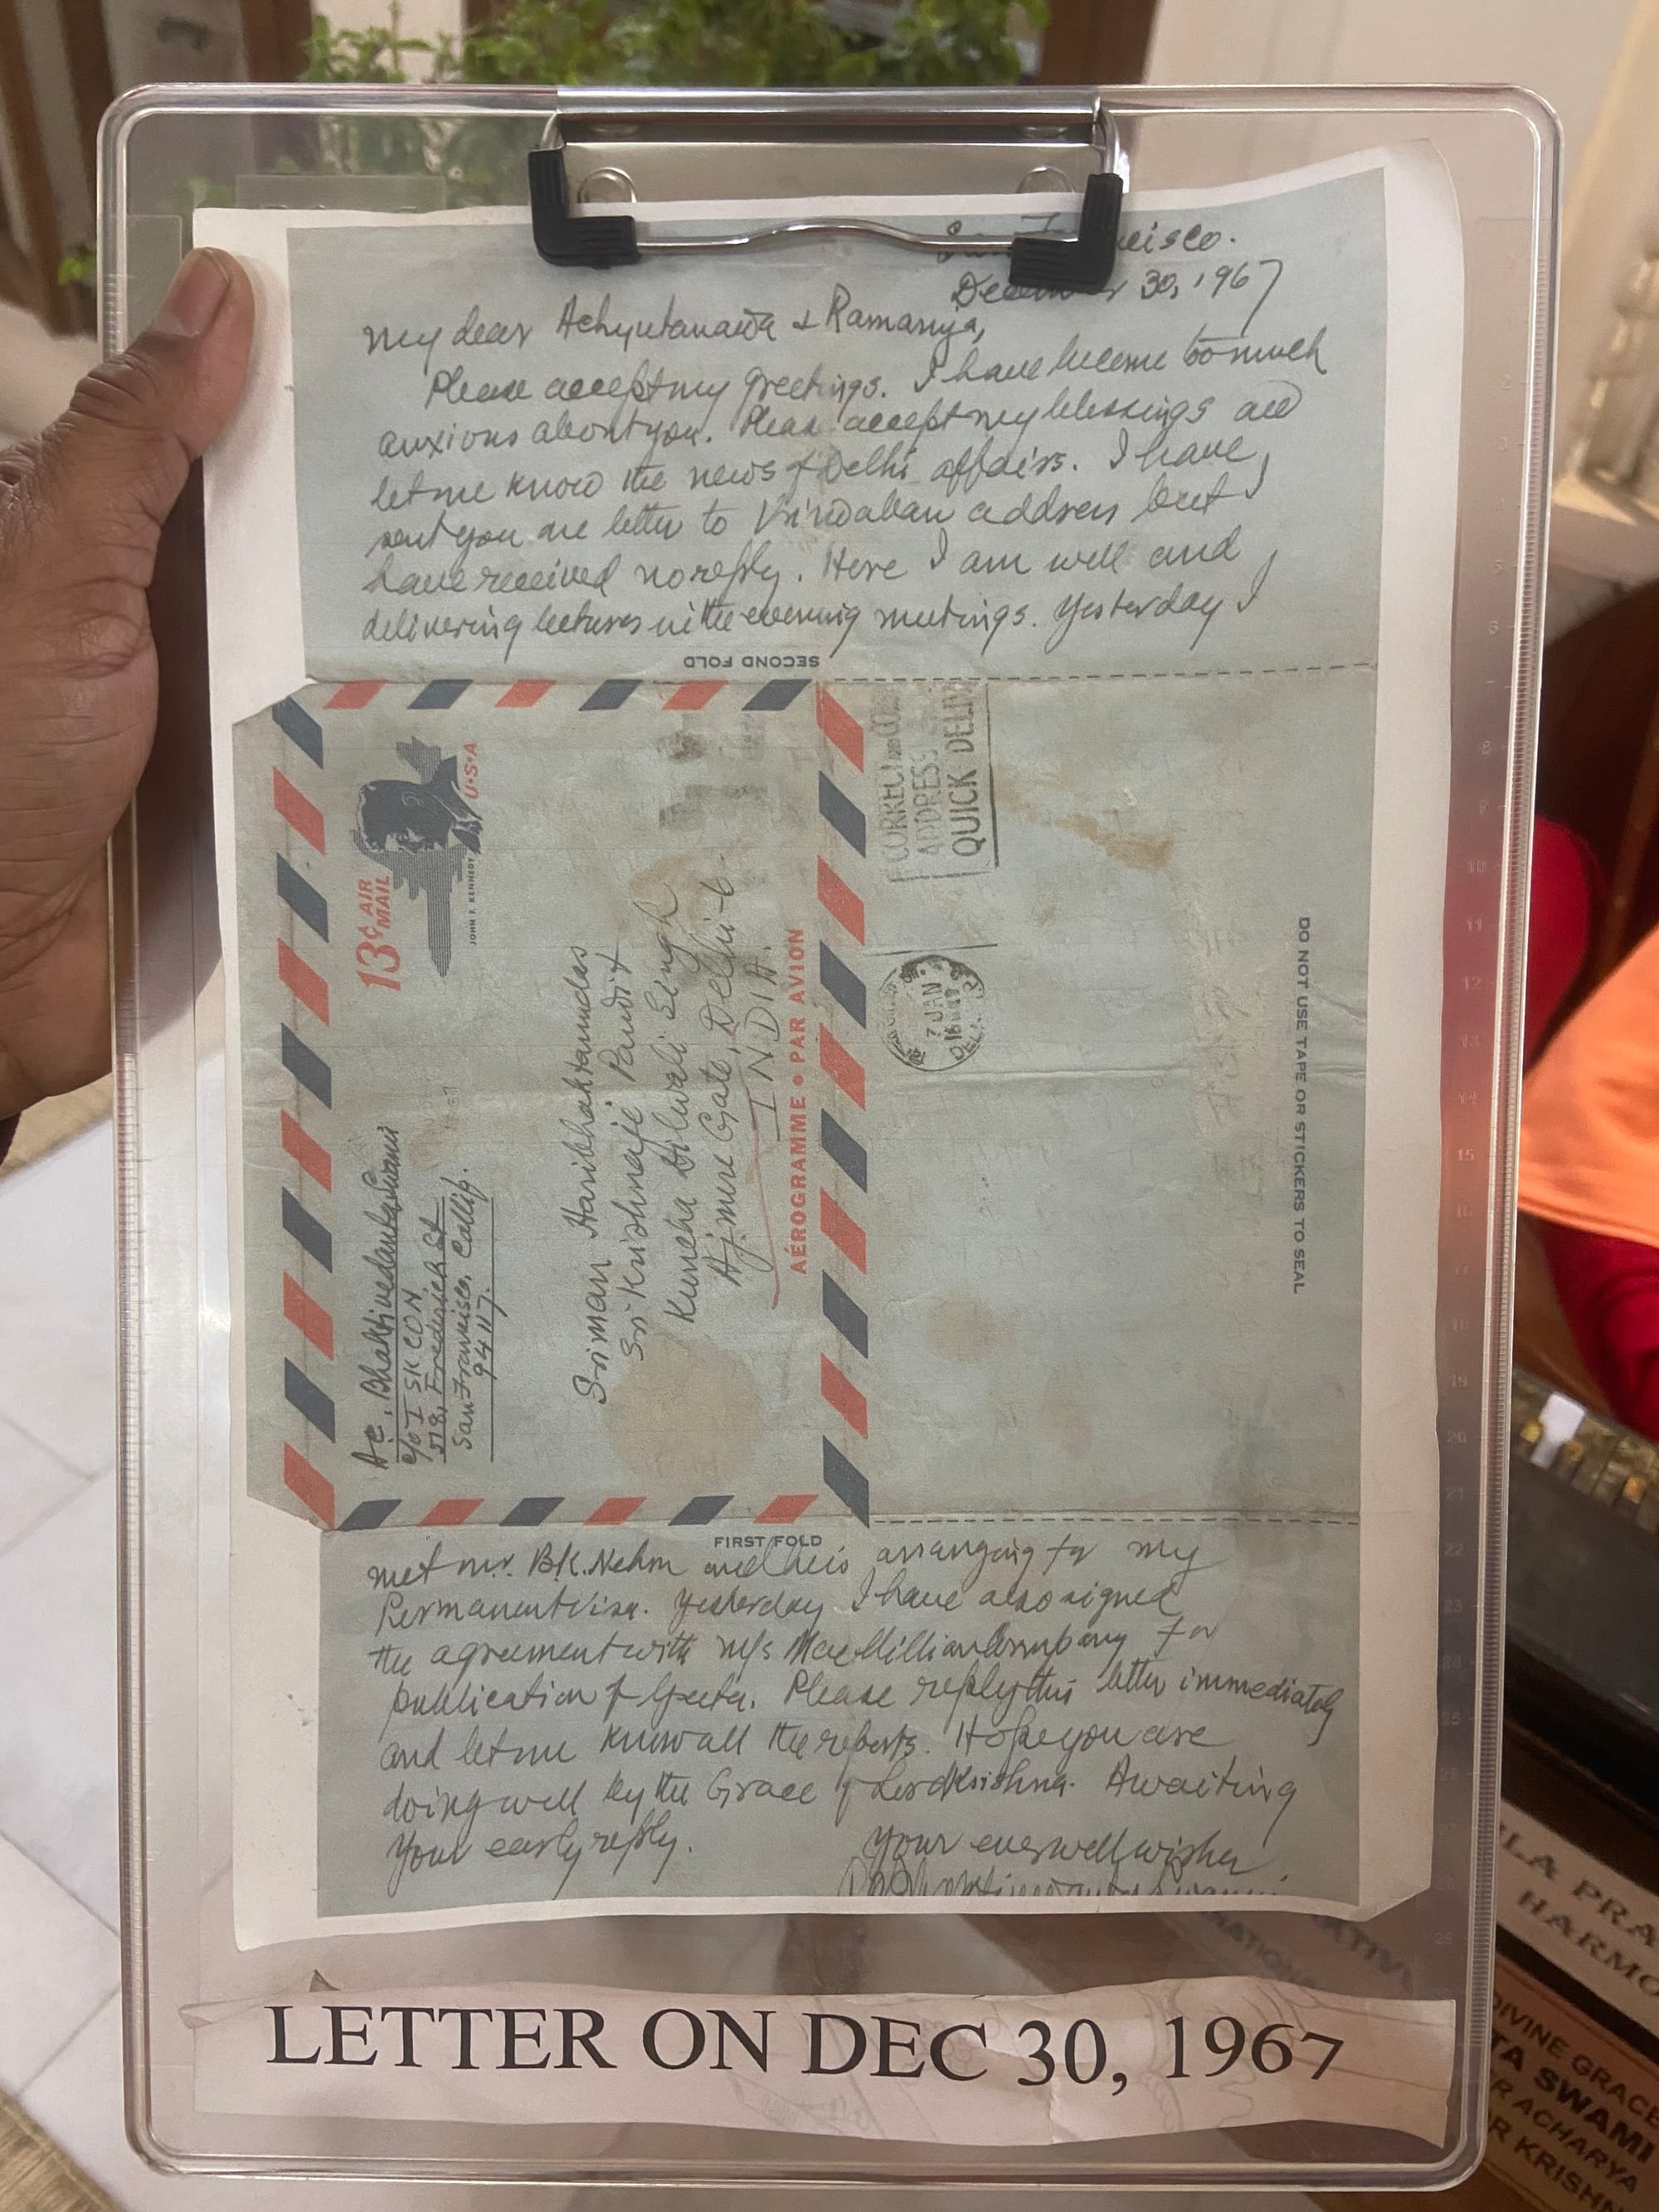 San Francisco.
December 30, 1967
My dear Achyutananda & Ramanuja,
Please accept my greetings. I have become too much
anxious about you. Please accept my blessings and
let me know the news of Delhi affairs. I have
sent you one letter to Vrindaban address but I
have received no reply. Here I am well and
delivering lectures in the evening meetings. Yesterday I
SECOND FOLD
13¢ AIR MAIL
JOHN F. KENNEDY
U·S·A
A.C. Bhaktivedanta Swami
c/o ISKCON
518, Frederick St
San Francisco, Callif.
94117.
Sriman Haribhaktamdas
Sri Krishnaji Pandit
Kuncha Dilwali Singh
Ajmere Gate, Delhi-6.
INDIA.
AÉROGRAMME • PAR AVION
CORRECT
ADDRESS
QUICK DELIV
7 JAN
DO NOT USE TAPE OR STICKERS TO SEAL
FIRST FOLD
met mr. B.K. Nehru and he is arranging for my
Permanent Visa. Yesterday I have also signed
the agreement with M/s MacMillian Company for
publication of Geeta. Please reply this letter immediately
and let me know all the reports. Hope you are
doing well by the Grace of Lord Krishna. Awaiting
your early reply.
Your ever well wisher
A.C. Bhaktivedanta Swami
LETTER ON DEC 30, 1967
LA PRA
HARMO
DIVINE GRACE
TA SWAMI
R ACHARYA
R KRISHN